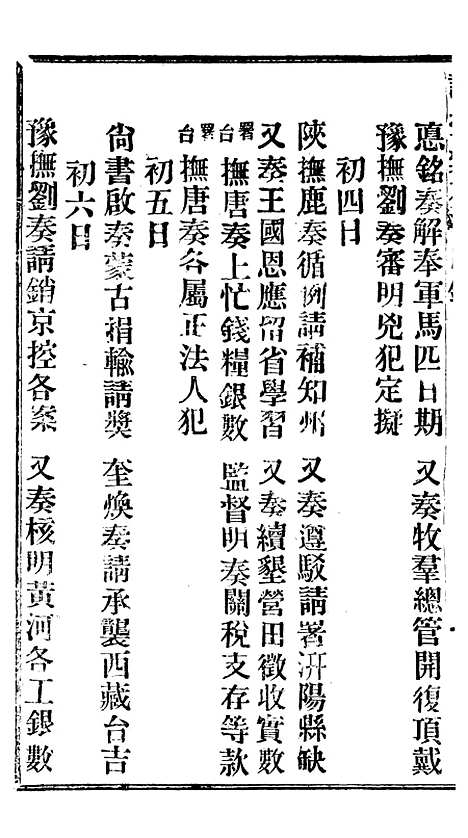 惪銘奏解奉軍馬匹日期　又奏牧羣總管開復頂戴
豫撫劉奏審明兇犯定擬
初四日
陝撫鹿奏循例請補知州　又奏遵駁請署汧陽縣缺
又奏王國恩應留省學習　又奏續墾營田徵收實數
署台撫唐奏上忙錢糧銀數　監督明奏關稅支存等款
署台撫唐奏各屬正法人犯
初五日
尙書啟奏蒙古捐輸請獎　奎煥奏請承襲西藏台吉
初六日
豫撫劉奏請銷京控各案　又奏核明黃河各工銀數